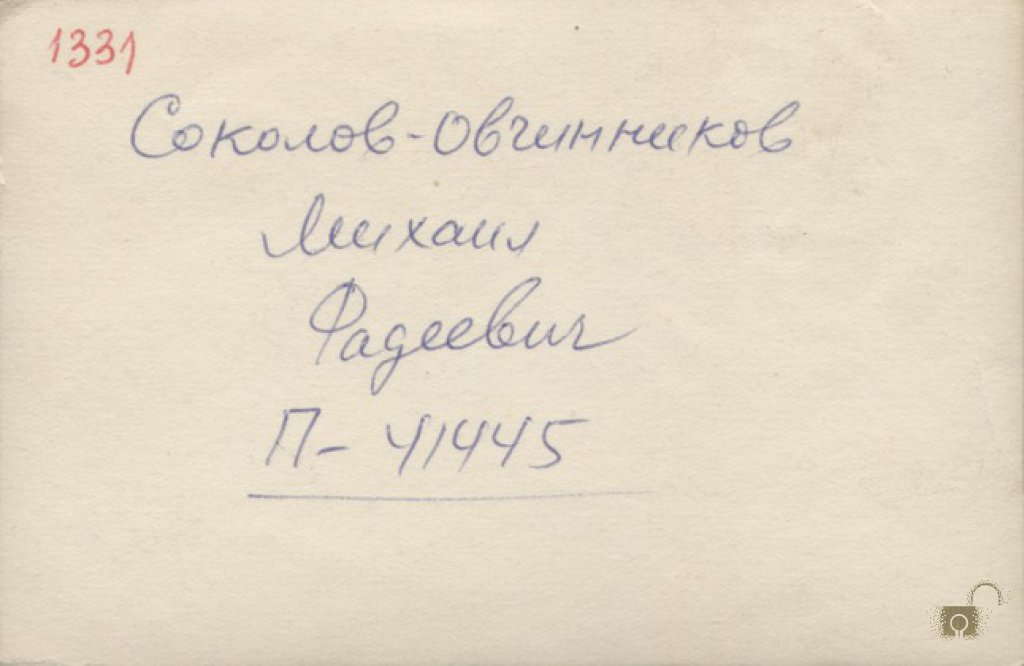 1331
Соколов-Овчинников
Михаил
Фадеевич
П-41445